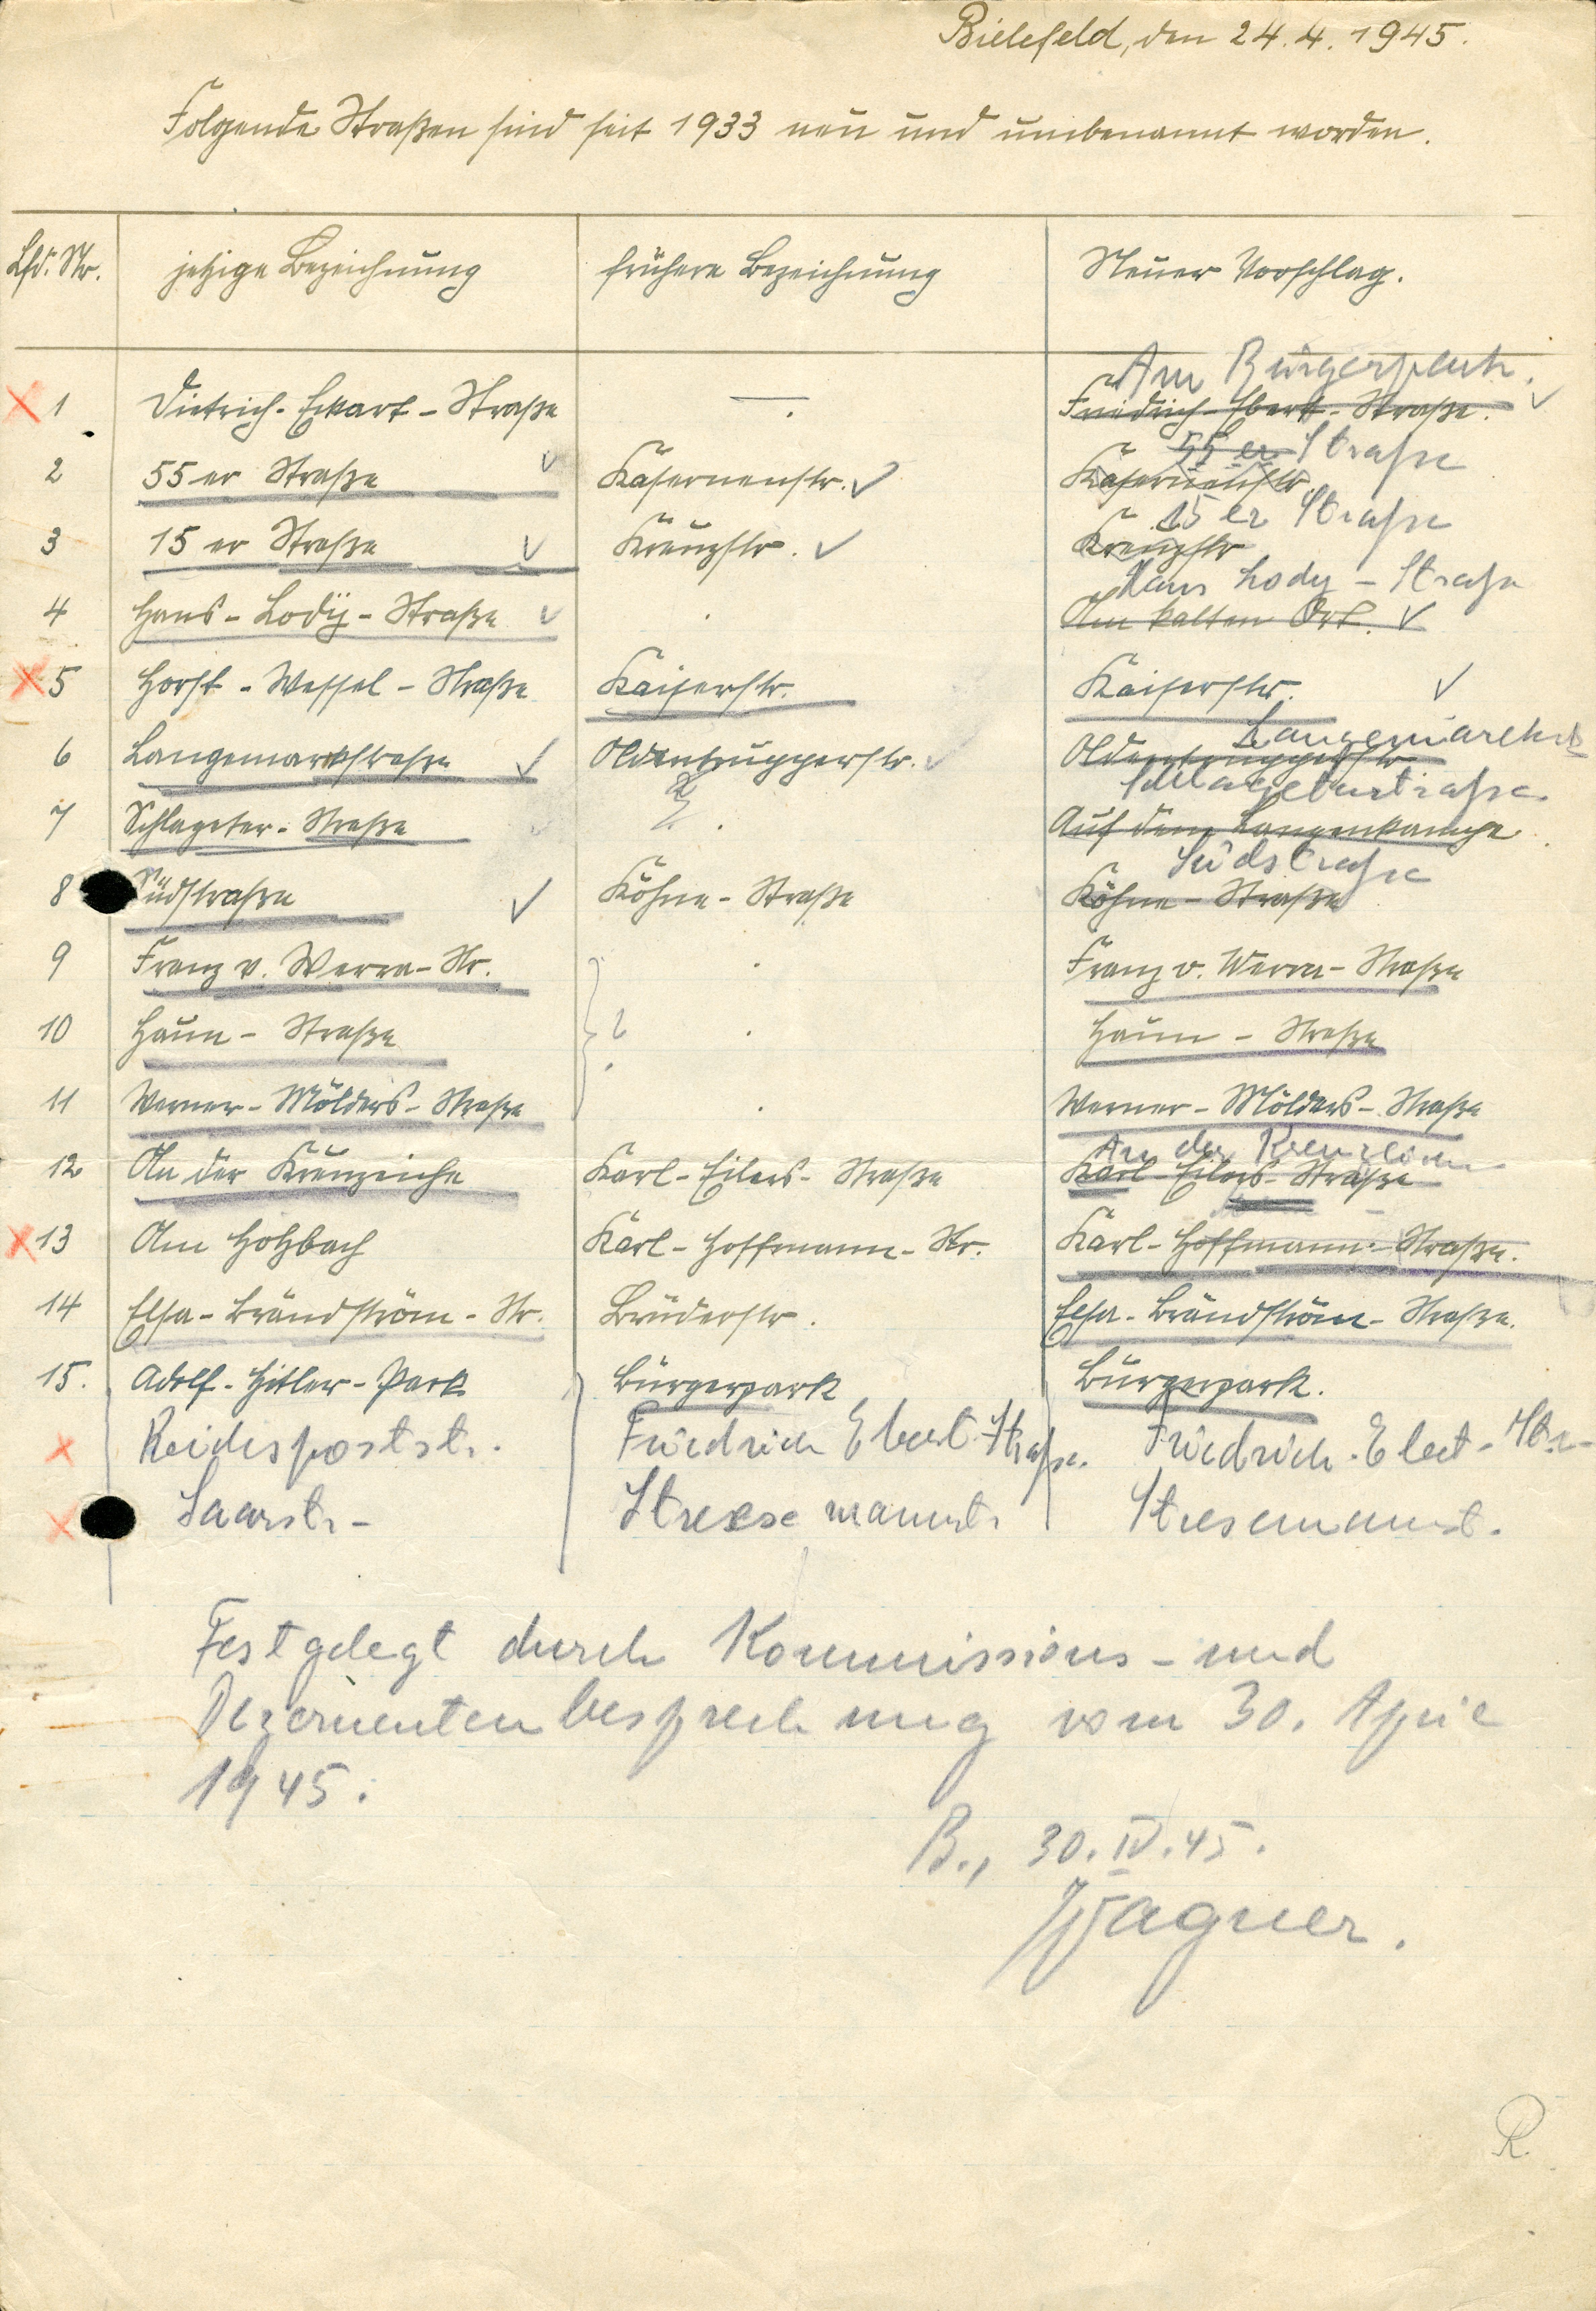 Bielefeld, den 24.4.1945.
Folgende Straßen sind seit 1933 neu und umbenannt worden.
Lfd. Nr. jetzige Bezeichnung frühere Bezeichnung Neuer Vorschlag.
Am Bürgerpark.
1 Dietrich-Eckart-Straße — . Friedrich-Ebert-Straße.
55er Straße
2 55er Straße Kasernenstr. Kasernenstr.
15er Straße
3 15er Straße Kreuzstr. Kreuzstr
Hans Lody-Straße
4 Hans-Lody-Straße . Am kalten Ort.
5 Horst-Wessel-Straße Kaiserstr. Kaiserstr.
Langemarck
6 Langemarkstraße Oldentrupperstr. Oldentrupperstr
Schlageterstraße
7 Schlageter-Straße ? . Auf dem Langenkampe
Südstraße
8 Südstraße Köhne-Straße Köhne-Straße
9 Franz v. Werra-Str. . Franz v. Werra-Straße
10 Haun-Straße ? . Haun-Straße
11 Werner-Mölders-Straße . Werner-Mölders-Straße
An der Kreuzeiche
12 An der Kreuzeiche Karl-Eilers-Straße Karl-Eilers-Straße
13 Am Holzbach Karl-Hoffmann-Str. Karl-Hoffmann-Straße.
14 Elsa-Brändström-Str. Brüderstr. Elsa-Brändström-Straße.
15. Adolf-Hitler-Park Bürgerpark Bürgerpark.
Reichspoststr. Friedrich Ebert-Straße. Friedrich-Ebert-Str.
Saarstr. Stresemannstr. Stresemannst.
Festgelegt durch Kommissions- und
Dezernentenbesprechung vom 30. April
1945.
B., 30.IV.45.
Wagner.
R